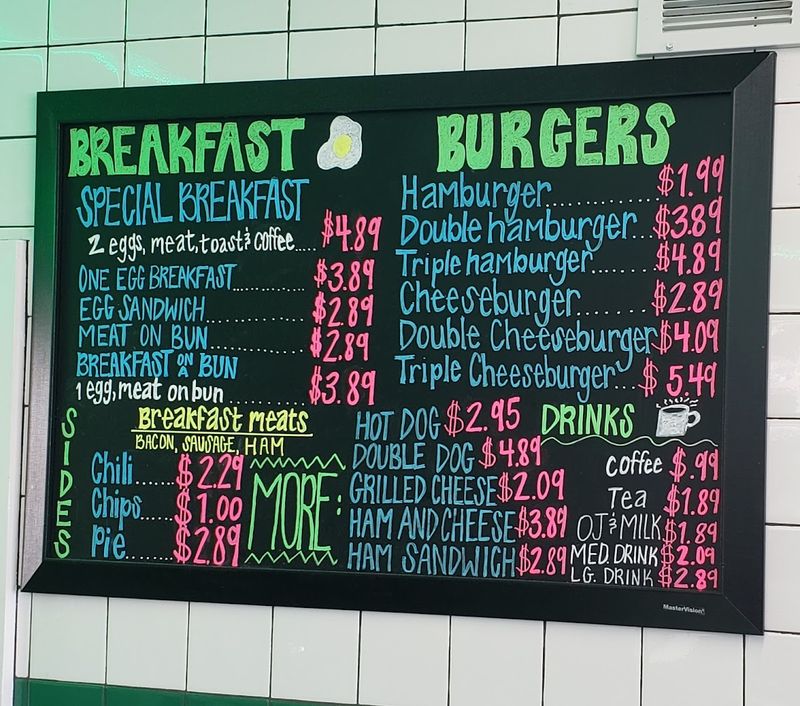 BREAKFAST
SPECIAL BREAKFAST
2 eggs, meat, toast & coffee..... $4.89
ONE EGG BREAKFAST............. $3.89
EGG SANDWICH................. $2.89
MEAT ON BUN................. $2.89
BREAKFAST ON A BUN
1 egg, meat on bun............. $3.89
Breakfast meats
BACON, SAUSAGE, HAM
SIDES
Chili...... $2.29
Chips..... $1.00
Pie........ $2.89
BURGERS
Hamburger............... $1.99
Double hamburger.. $3.89
Triple hamburger....... $4.89
Cheeseburger........... $2.89
Double Cheeseburger $4.09
Triple Cheeseburger... $5.49
MORE:
HOT DOG $2.95
DOUBLE DOG $4.89
GRILLED CHEESE $2.09
HAM AND CHEESE $3.89
HAM SANDWICH $2.89
DRINKS
Coffee $.99
Tea $1.89
OJ & MILK $1.89
MED. DRINK $2.09
LG. DRINK $2.89
MasterVision